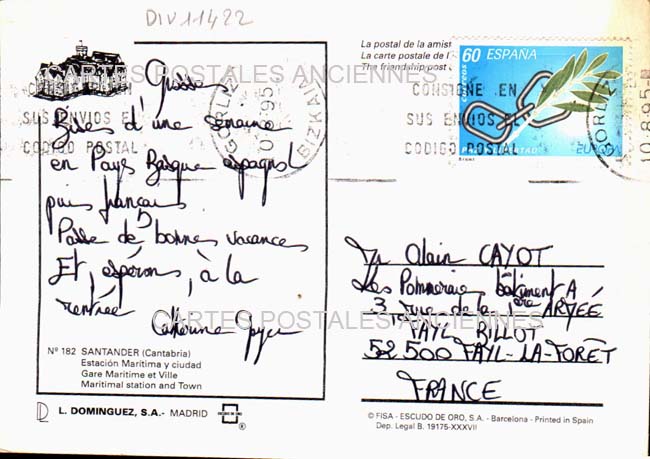 DIV11422
La postal de la amist
La carte postale de l'
The friendship post
CARTES POSTALES ANCIENNES
60 ESPAÑA
correos
EUROPA
CONSIGNE EN
SUS ENVIOS EL
CODIGO POSTAL
GORLIZ
10.8.95
BIZKAIA
CONSIGNE EN
SUS ENVIOS EL
CODIGO POSTAL
GORLIZ
10.8.95
Grosses
Bises d'une semaine
en Pays Basque espagnol
puis français
Passe de bonnes vacances
Et, espérons, à la
rentrée
Catherine
Mr Alain CAYOT
Les Pommeraies bâtiment A
3 rue de la 1ère ARMÉE
FAYL BILLOT
52500 FAYL-LA-FORÊT
FRANCE
CARTES POSTALES ANCIENNES
Nº 182 SANTANDER (Cantabria)
Estación Marítima y ciudad
Gare Maritime et Ville
Maritimal station and Town
L. DOMINGUEZ, S.A.- MADRID
®
© FISA - ESCUDO DE ORO, S.A. - Barcelona - Printed in Spain
Dep. Legal B. 19175-XXXVII